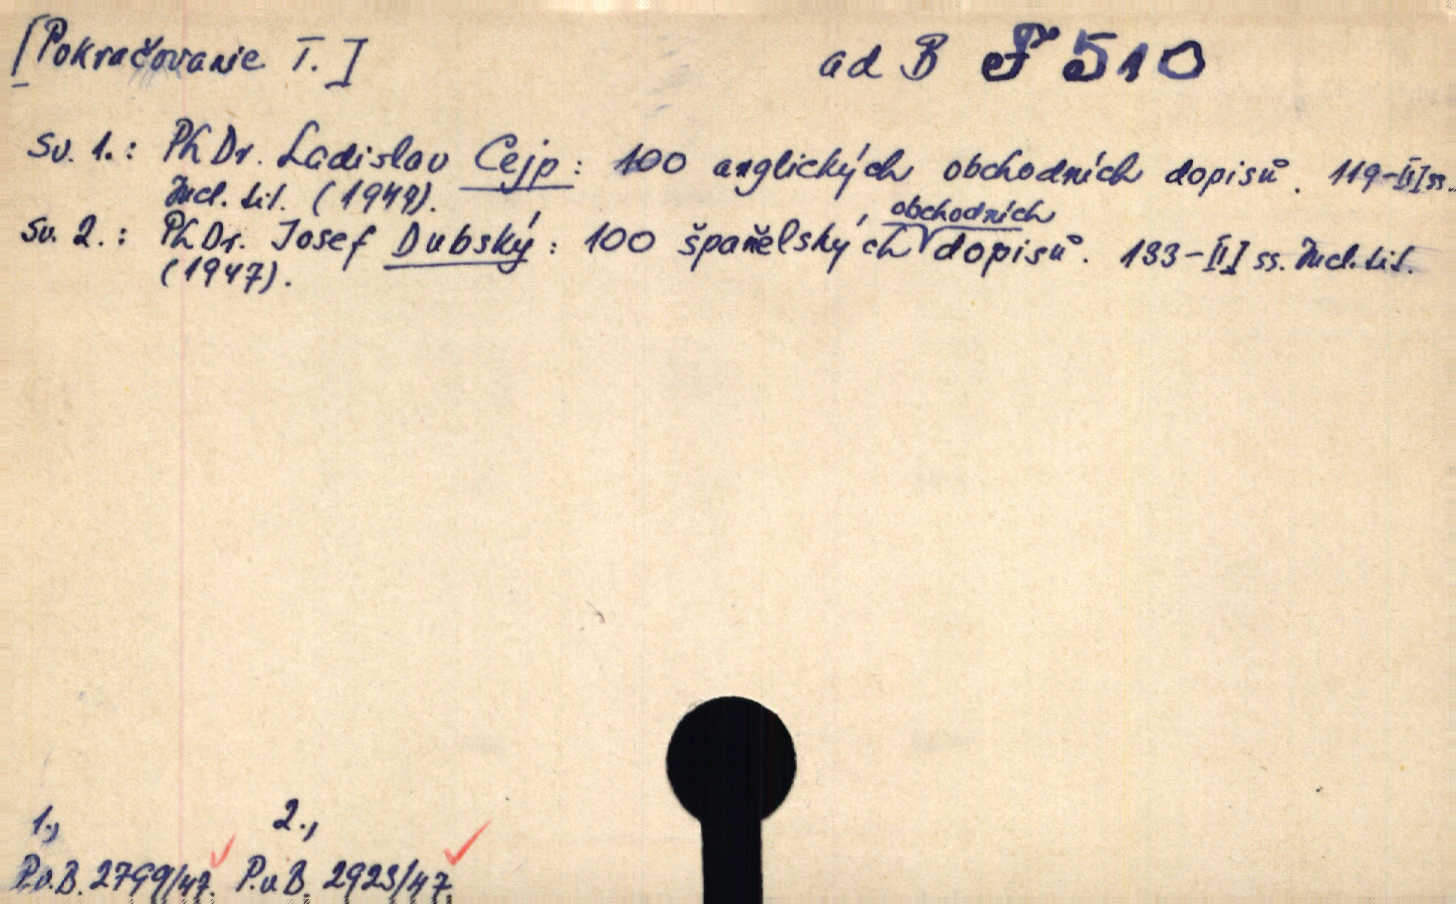 [Pokračovanie I.] ad B F 510
Sv. 1.: PhDr. Ladislav Cejp: 100 anglických obchodních dopisů. 119-[II] ss.
Incl. tit. (1949).
obchodních
Sv. 2.: PhDr. Josef Dubský: 100 španělských dopisů. 133-[I] ss. Incl. tit.
(1947).
1., 2.,
P.v.B. 2799/47. P.v.B. 2923/47.